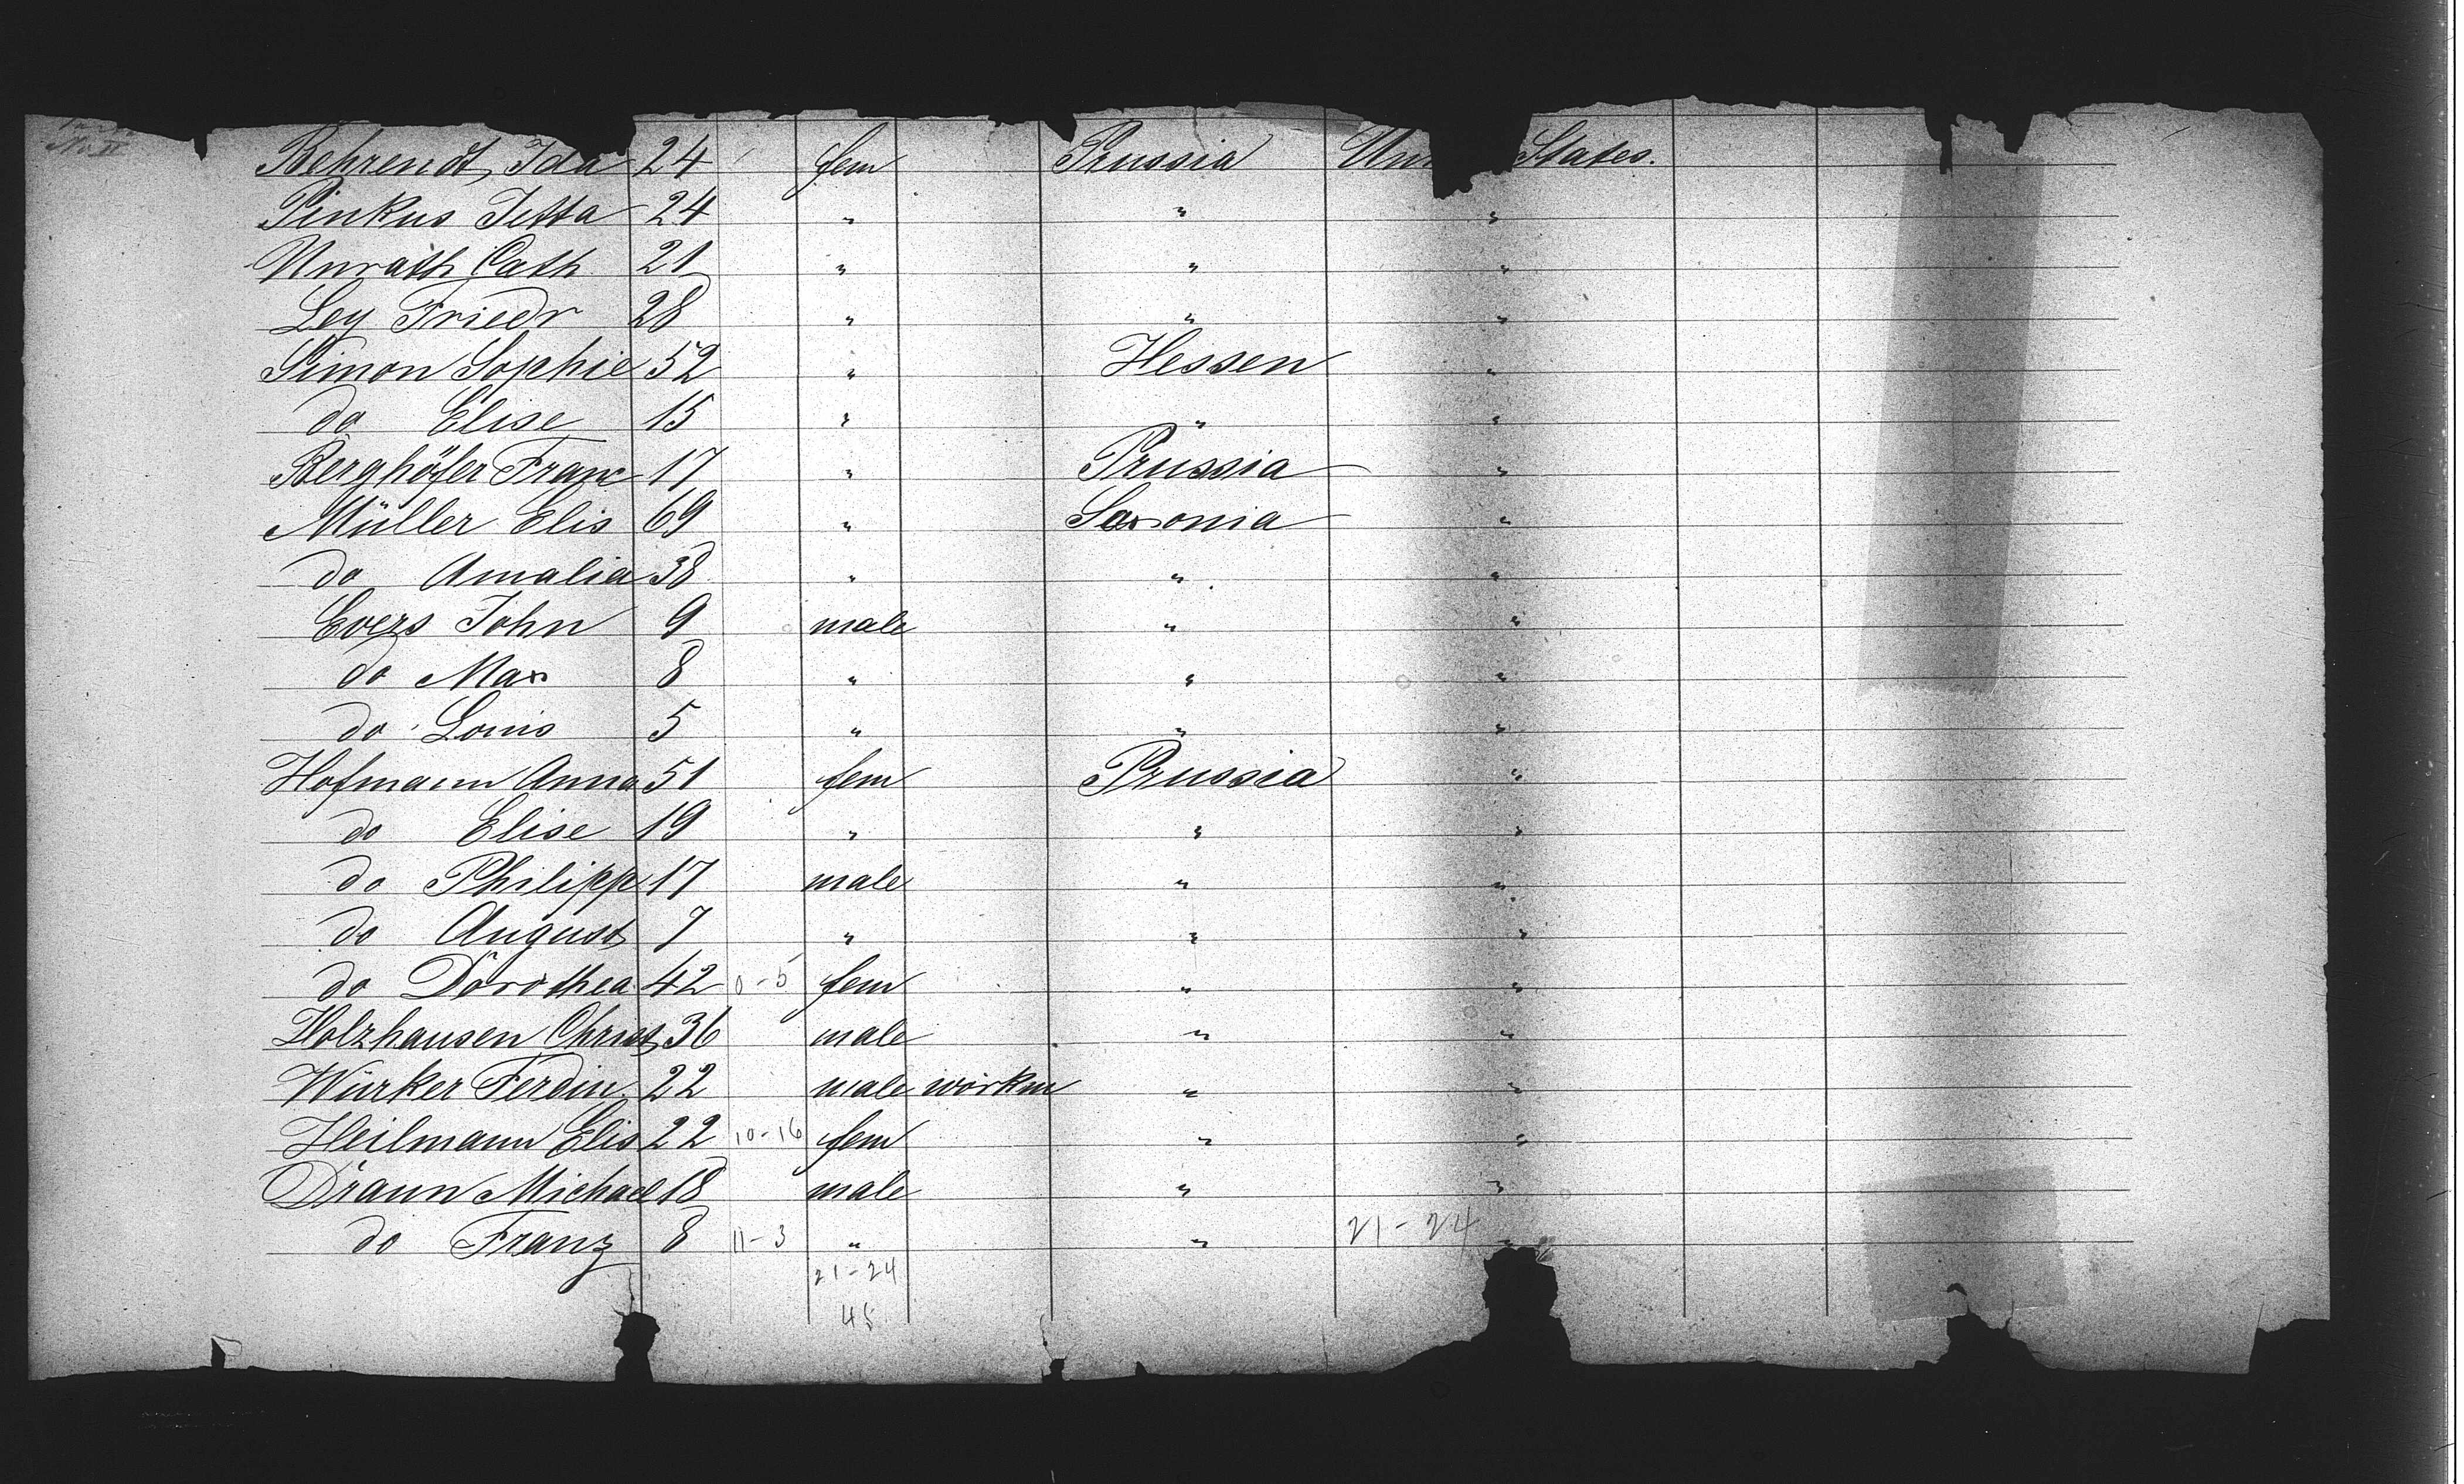 No II
Behrendt, Ida 24 fem Prussia Un States.
Pinkus Jetta 24 " " "
Unrath Cath. 21 " " "
Ley Friedr 28 " " "
Simon Sophie 52 " Hessen "
do Elise 15 " " "
Berghöfer Franc 17 " Prussia "
Müller Elis 69 " Saxonia "
do Amalia 38 " " "
Evers John 9 male " "
do Max 8 " " "
do Louis 5 " " "
Hofmann Anna 51 fem Prussia "
do Elise 19 " " "
do Philipp 17 male " "
do August 7 " " "
do Dorothea 42 0-5 fem " "
Holzhausen Christ 36 male " "
Würker Ferdin. 22 male workm " "
Heilmann Elis 22 10-16 fem " "
Draun Michael 18 male " "
do Franz 8 11-3 " " 21-24 "
21-24
45